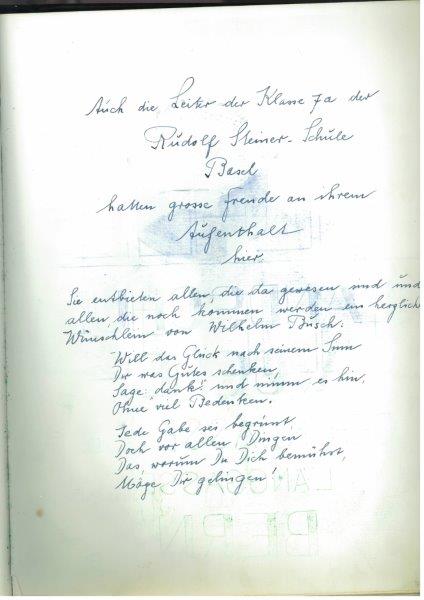 Auch die Leiter der Klasse 7a der
Rudolf Steiner-Schule
Basel
hatten grosse Freude an ihrem
Aufenthalt
hier.
Sie entbieten allen, die da gewesen sind und
allen, die noch kommen werden ein herzlich
Wünschlein von Wilhelm Busch:
Will das Glück nach seinem Sinn
Dir was Gutes schenken,
Sage „dank!" und nimm es hin,
Ohne viel Bedenken.
Jede Gabe sei begrüsst,
Doch vor allen Dingen
Das, worum Du Dich bemühst,
Möge Dir gelingen!
LÄNGGASS
BERN